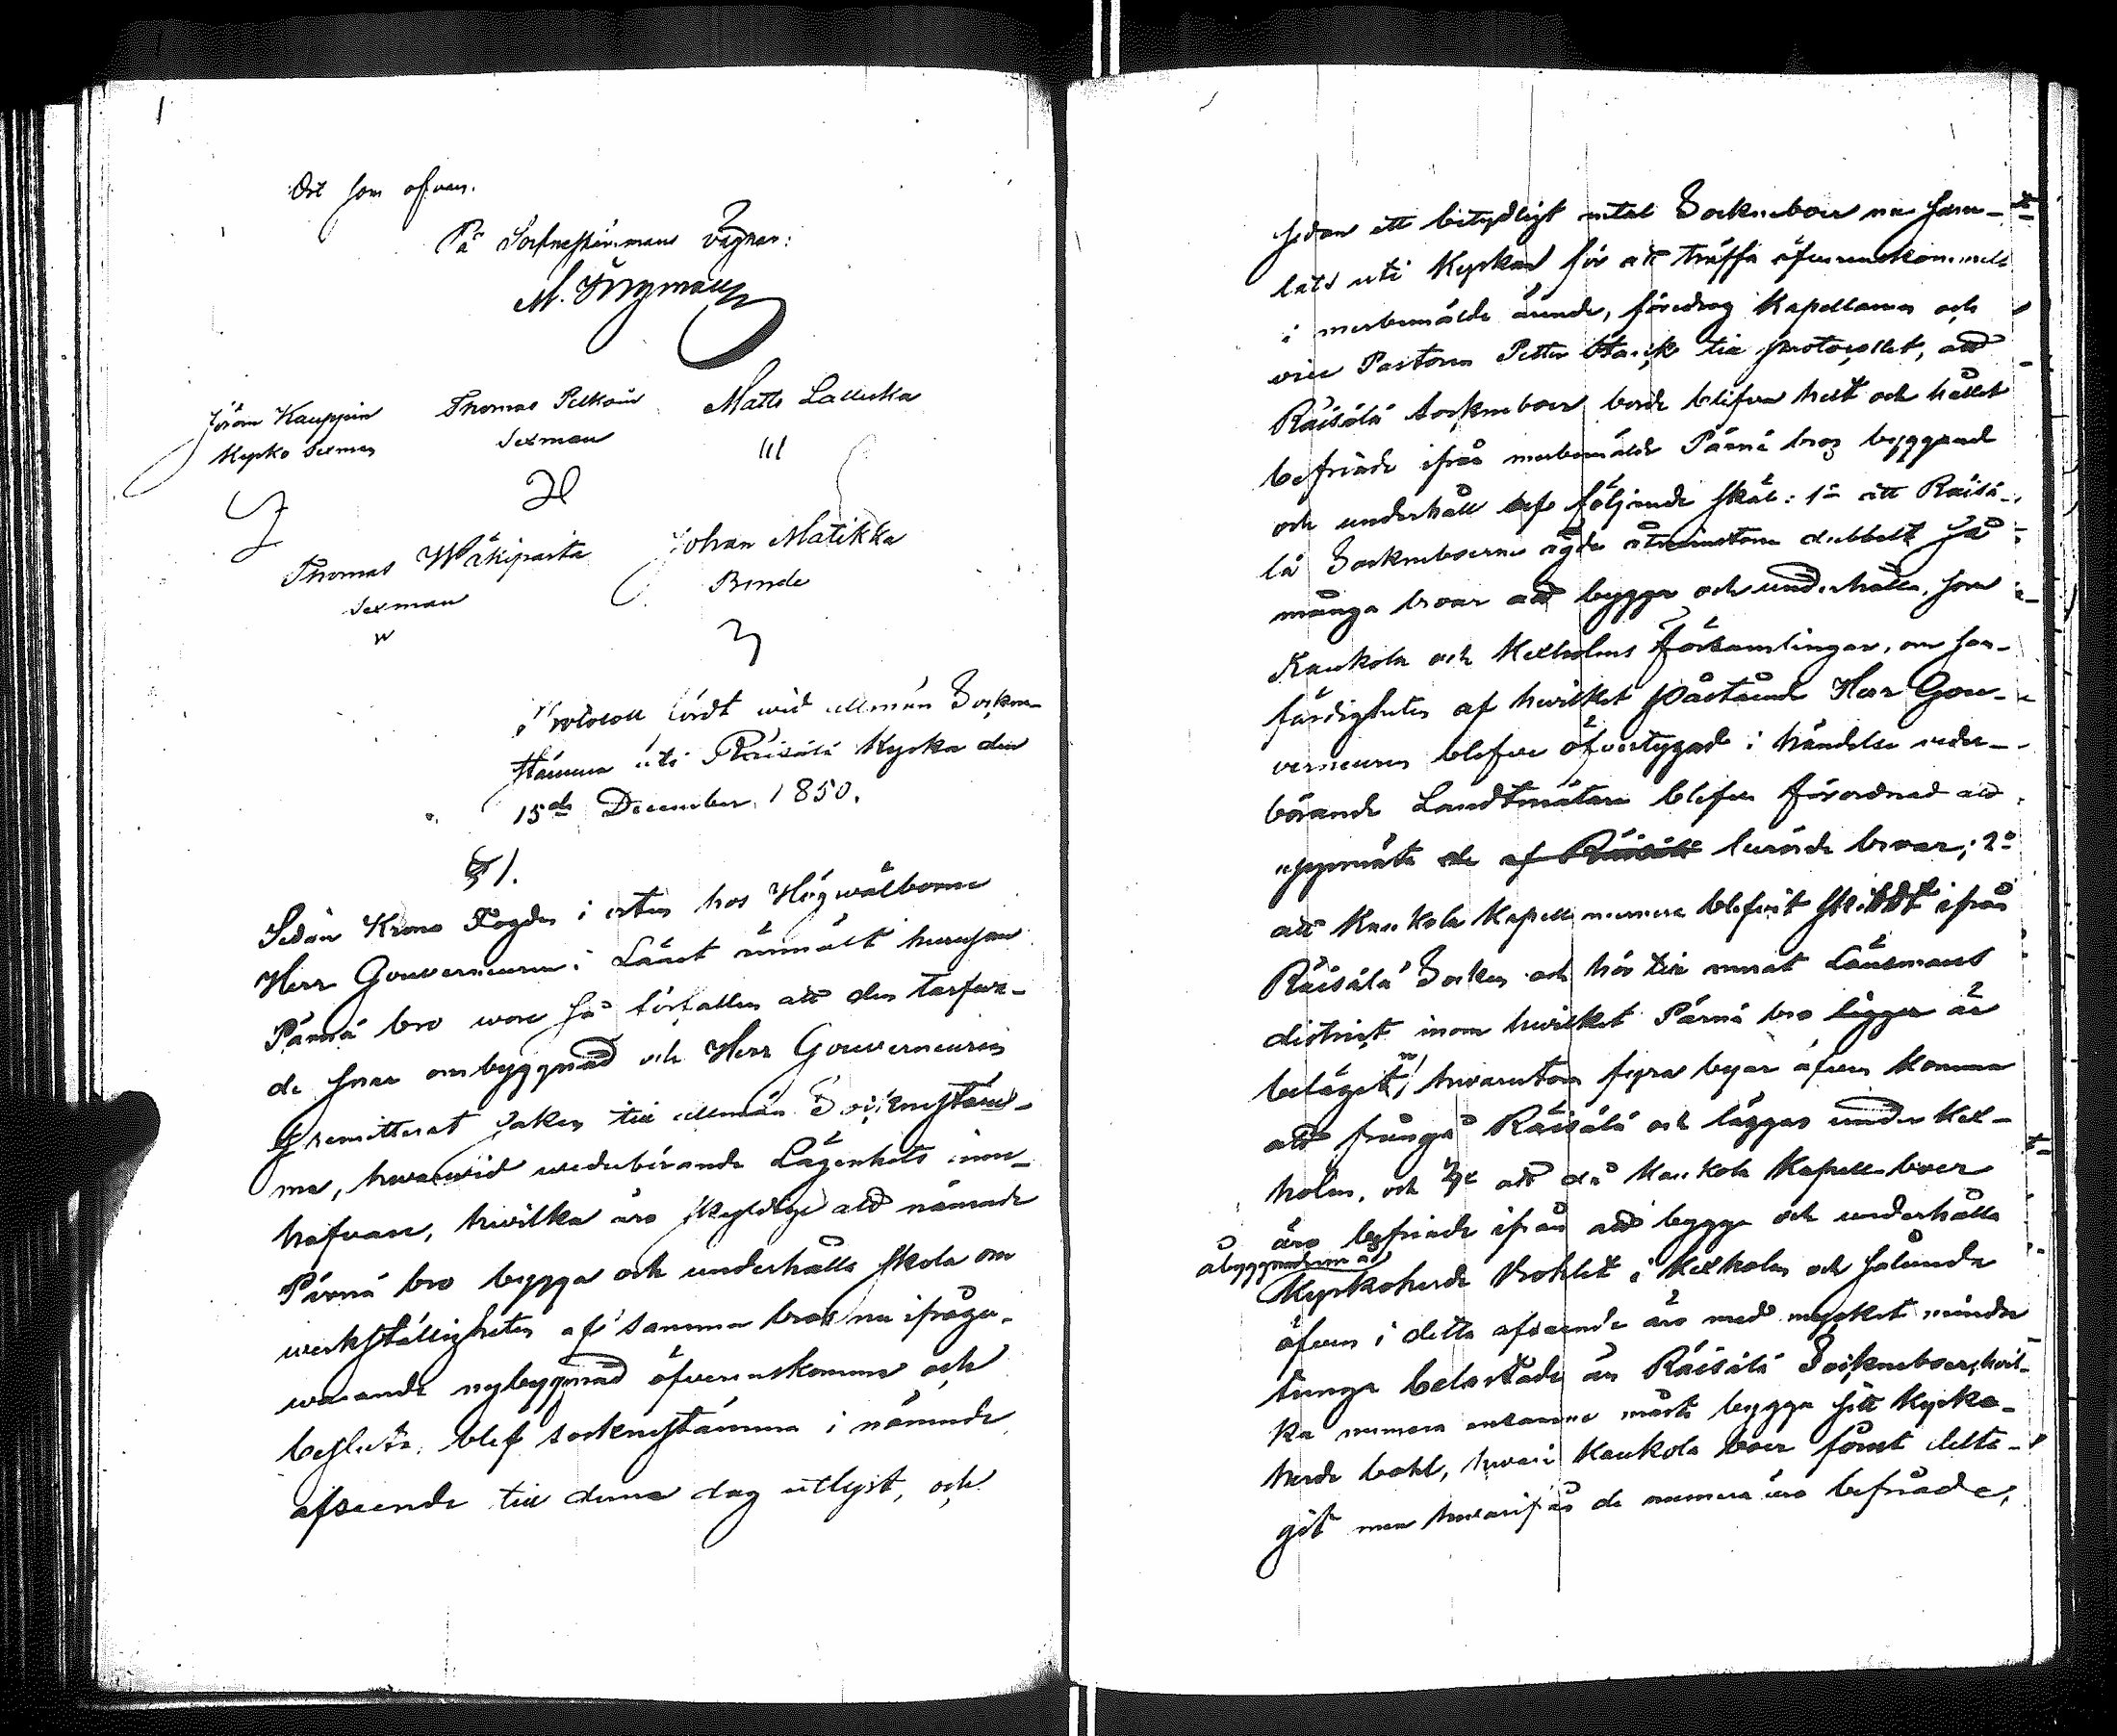 Ort som ofvan.
På Socknestämmans vägnar:
M. Ingman
Jöran Kauppin Thomas Pelkoin Matts Lallukka
Kyrko Sexman Sexman III
Thomas Wäkiparta Johan Matikka
Sexman Bonde
Protocoll fördt wid allmän Sockne-
stämma uti Räisälä Kyrka den
15de December 1850.
§ 1.
Sedan Krono Fogden i orten hos Högwälborne
Herr Gouverneuren i Länet anmält hurusom
Pärnä bro wore så förfallen att den tarfva-
de snar ombyggnad och Herr Gouverneuren
remitterat saken till allmän Socknestäm-
ma, hwarwid wederbörande Lägenhets inne-
hafvare, hwilka äro skyldige att nämnde
Pärnä bro bygga och underhålla skola om
werkställigheten af samma bros nu ifråga-
warande nybyggnad öfverenskomma och
besluta, blef socknestämma i nämnde
afseende till denna dag utlyst, och
sedan ett betydligt antal Sockneboer nu sam-
lats uti Kyrkan för att träffa öfverenskommelse
i merbemälde ärende, föredrog Kapellanen och
vice Pastoren Petter Starck till protocollet, att
Räisälä Sockneboer borde blifva helt och hållet
befriade ifrån merbemälde Pärnä bros byggnad
och underhåll af följande skäl: 1o att Räisä-
lä Sockneboerne ägde åtminstone dubbelt så
många broar att bygga och underhålla, som
Kaukola och Kexholms Församlingar, om san-
färdigheten af hwilket påstående Herr Gou-
verneuren blefve öfvertygad i händelse veder-
börande Landtmätare blefve förordnad att
uppmäta de af Räisälä berörde broar; 2o
att Kaukola Kapell numera blefvit skildt ifrån
Räisälä Socken och hör till annat Länsmans
district inom hwilket Pärnä bro ligger är
belägen, hwarutom fyra byar äfven komma
att frångå Räisälä och läggas under Kex-
holm, och 3o att då Kaukola Kapellboer
äro befriade ifrån att bygga och underhålla
åbyggnaderne å
Kyrkoherde Bohlet i Kexholm och sålunda
äfven i detta afseende äro med mycket mindre
tunga belastade än Räisälä Sockneboer, hwil-
ka numera ensamme måste bygga sitt Kyrko-
herde bohl, hwari Kaukola boer förut delta-
git men hwarifrån de numera äro befriade,